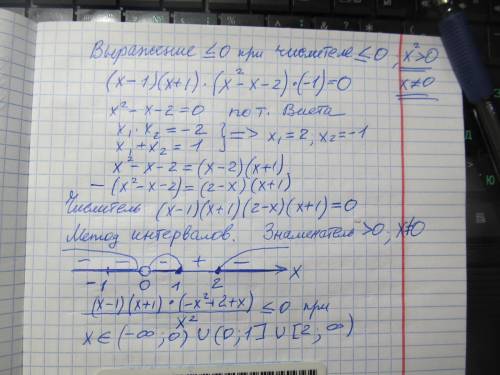 Выражение ≤0 при числителе ≤0, x²>0
(x-1)(x+1)·(x²-x-2)·(-1)=0 x≠0
x²-x-2=0 по т. Виета
x₁·x₂=-2
x₁+x₂=1 } => x₁=2, x₂=-1
x²-x-2=(x-2)(x+1)
-(x²-x-2)=(2-x)(x+1)
Числитель (x-1)(x+1)(2-x)(x+1)=0
Метод интервалов. Знаменатель >0, x≠0
- - - + -
-1 0 1 2 x
(x-1)(x+1)·(-x²+2+x)/x² ≤0 при
x∈(-∞;0)∪(0;1]∪[2;∞)